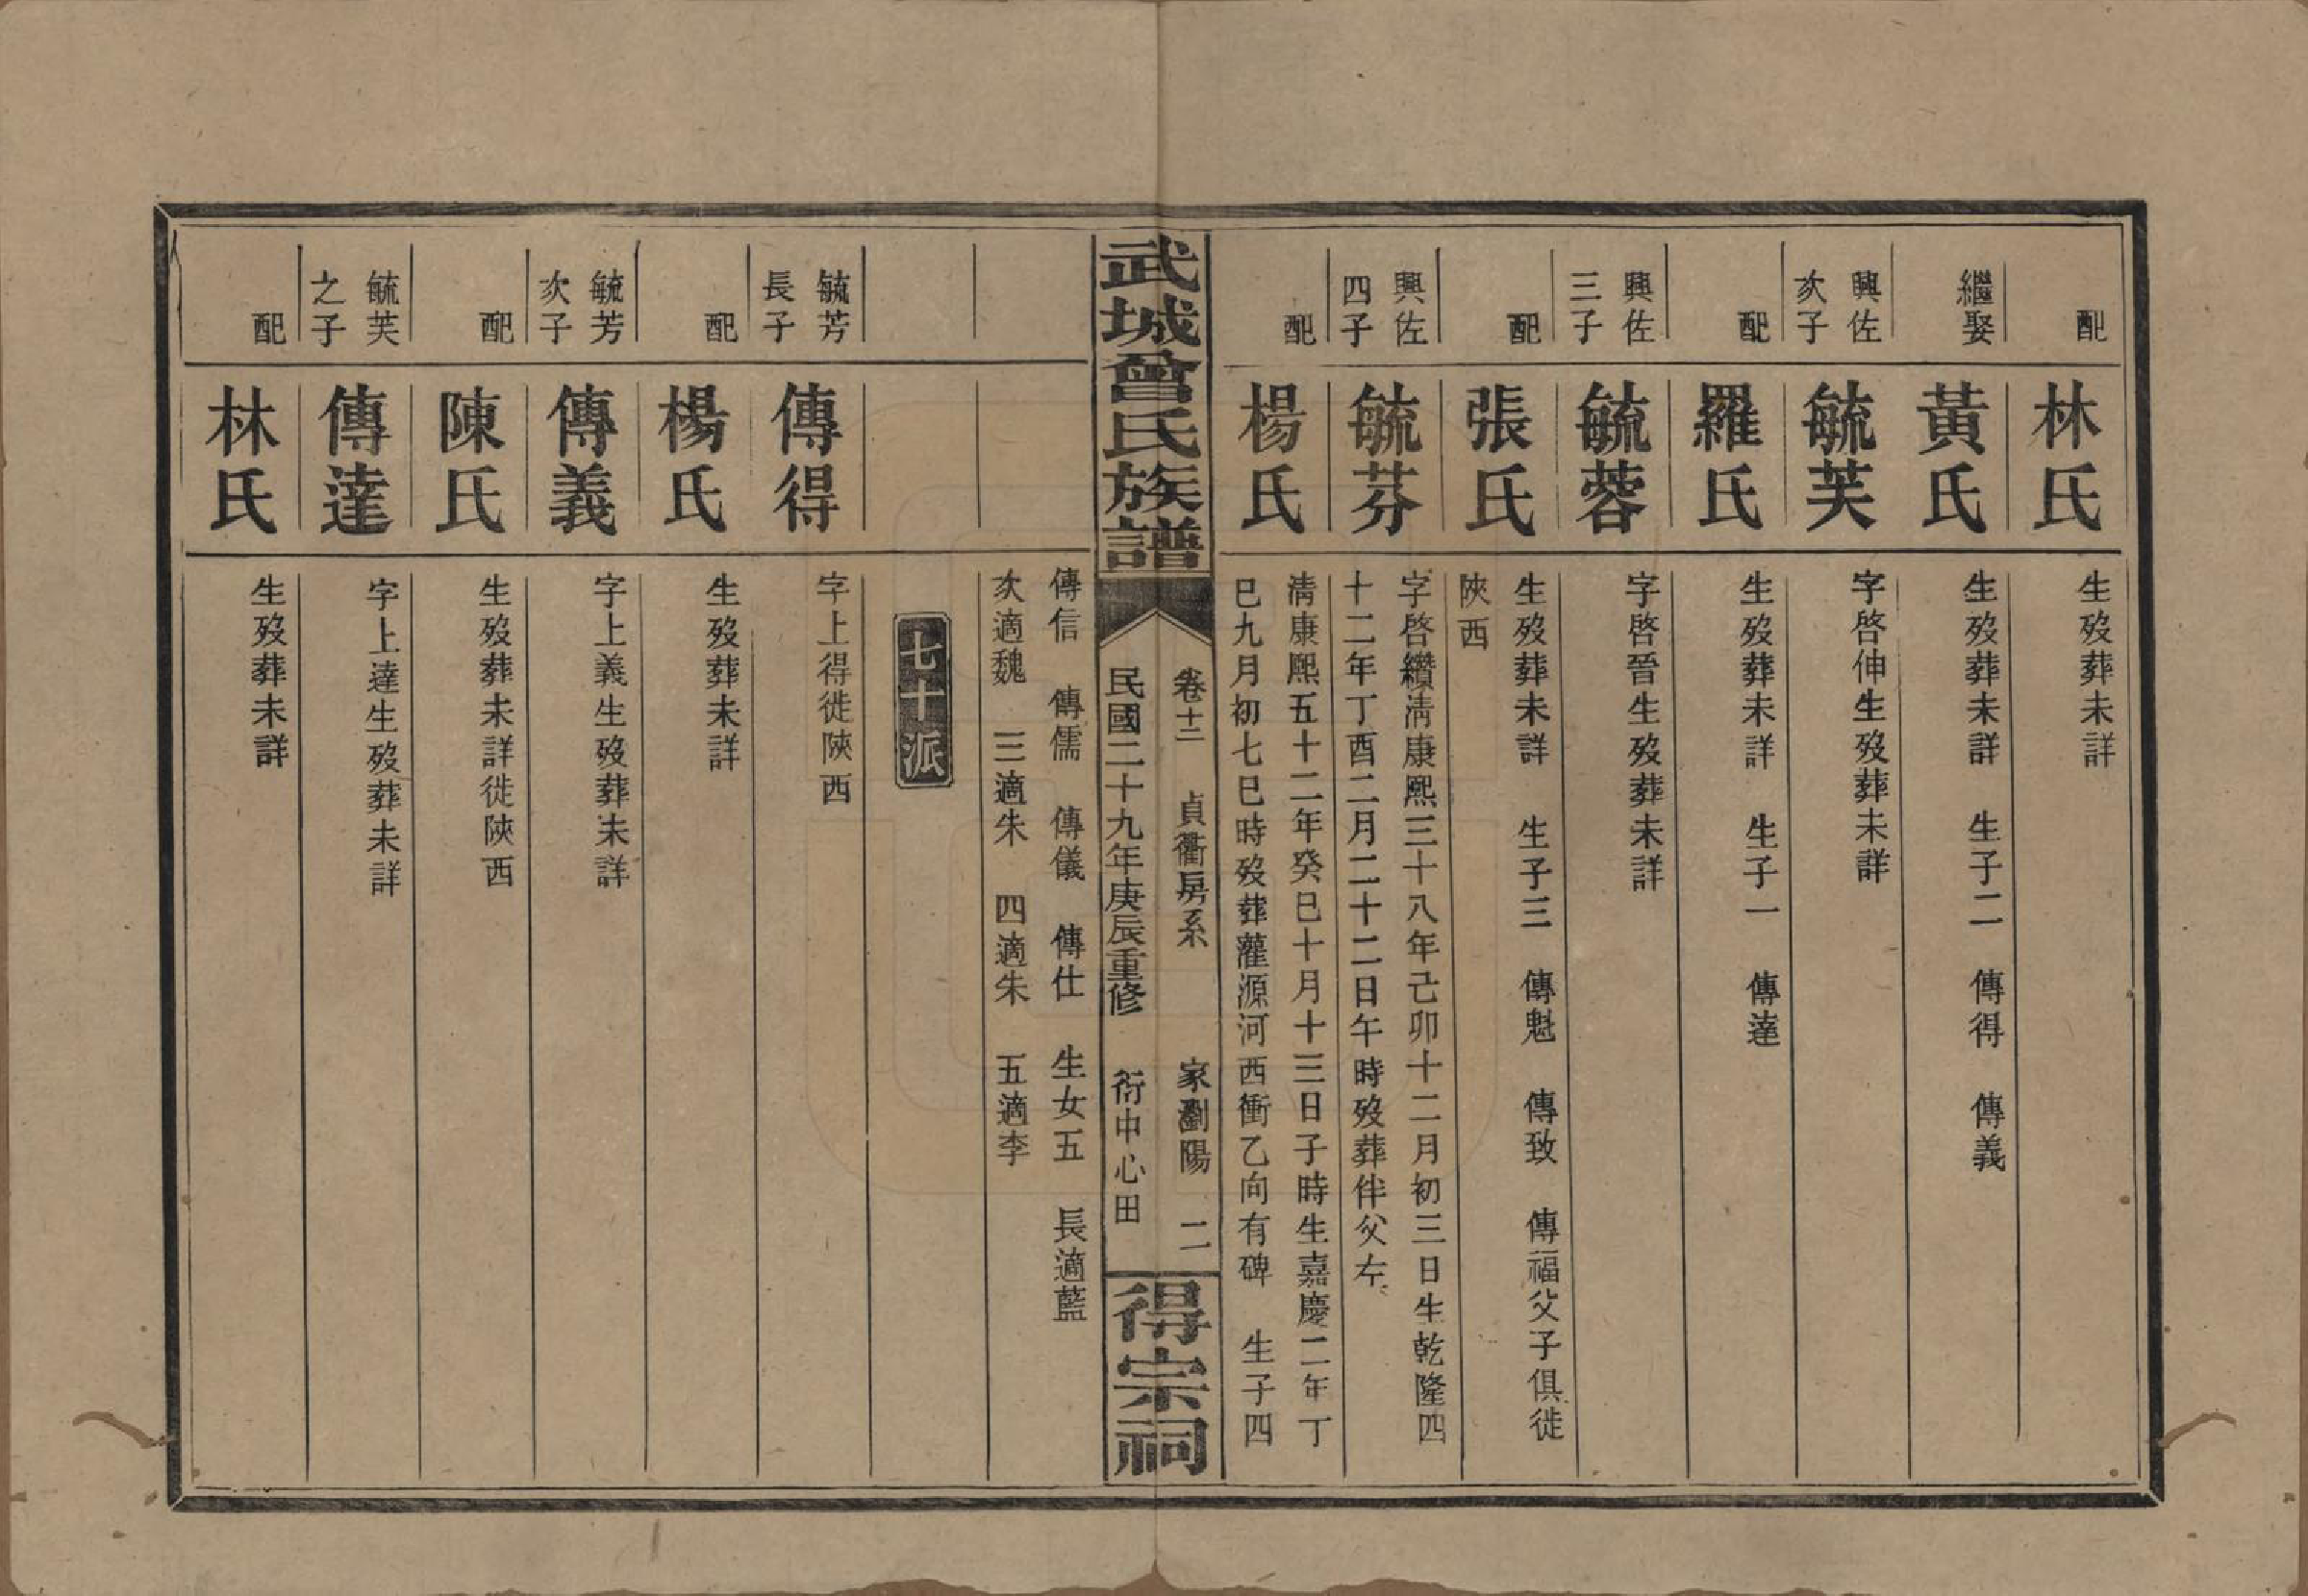 配
林氏
生歿葬未詳
繼娶
黃氏
生歿葬未詳　生子二　傳得　傳義
興佐
次子
毓芙
字啓伸生歿葬未詳
配
羅氏
生歿葬未詳　生子一　傳達
興佐
三子
毓蓉
字啓晉生歿葬未詳
配
張氏
生歿葬未詳　生子三　傳魁　傳致　傳福父子俱徙
陝西
興佐
四子
毓芬
字啓纘淸康熙三十八年己卯十二月初三日生乾隆四
十二年丁酉二月二十二日午時歿葬伴父左
配
楊氏
淸康熙五十二年癸巳十月十三日子時生嘉慶二年丁
巳九月初七巳時歿葬灌源河西衝乙向有碑　生子四
武城曾氏族譜
卷十二　貞衢房系　家瀏陽　二
民國二十九年庚辰重修　衍中心田
得宗祠
傳信　傳儒　傳儀　傳仕　生女五　長適藍
次適魏　三適朱　四適朱　五適李
七十派
毓芳
長子
傳得
字上得徙陝西
配
楊氏
生歿葬未詳
毓芳
次子
傳義
字上義生歿葬未詳
配
陳氏
生歿葬未詳徙陝西
毓芙
之子
傳達
字上達生歿葬未詳
配
林氏
生歿葬未詳